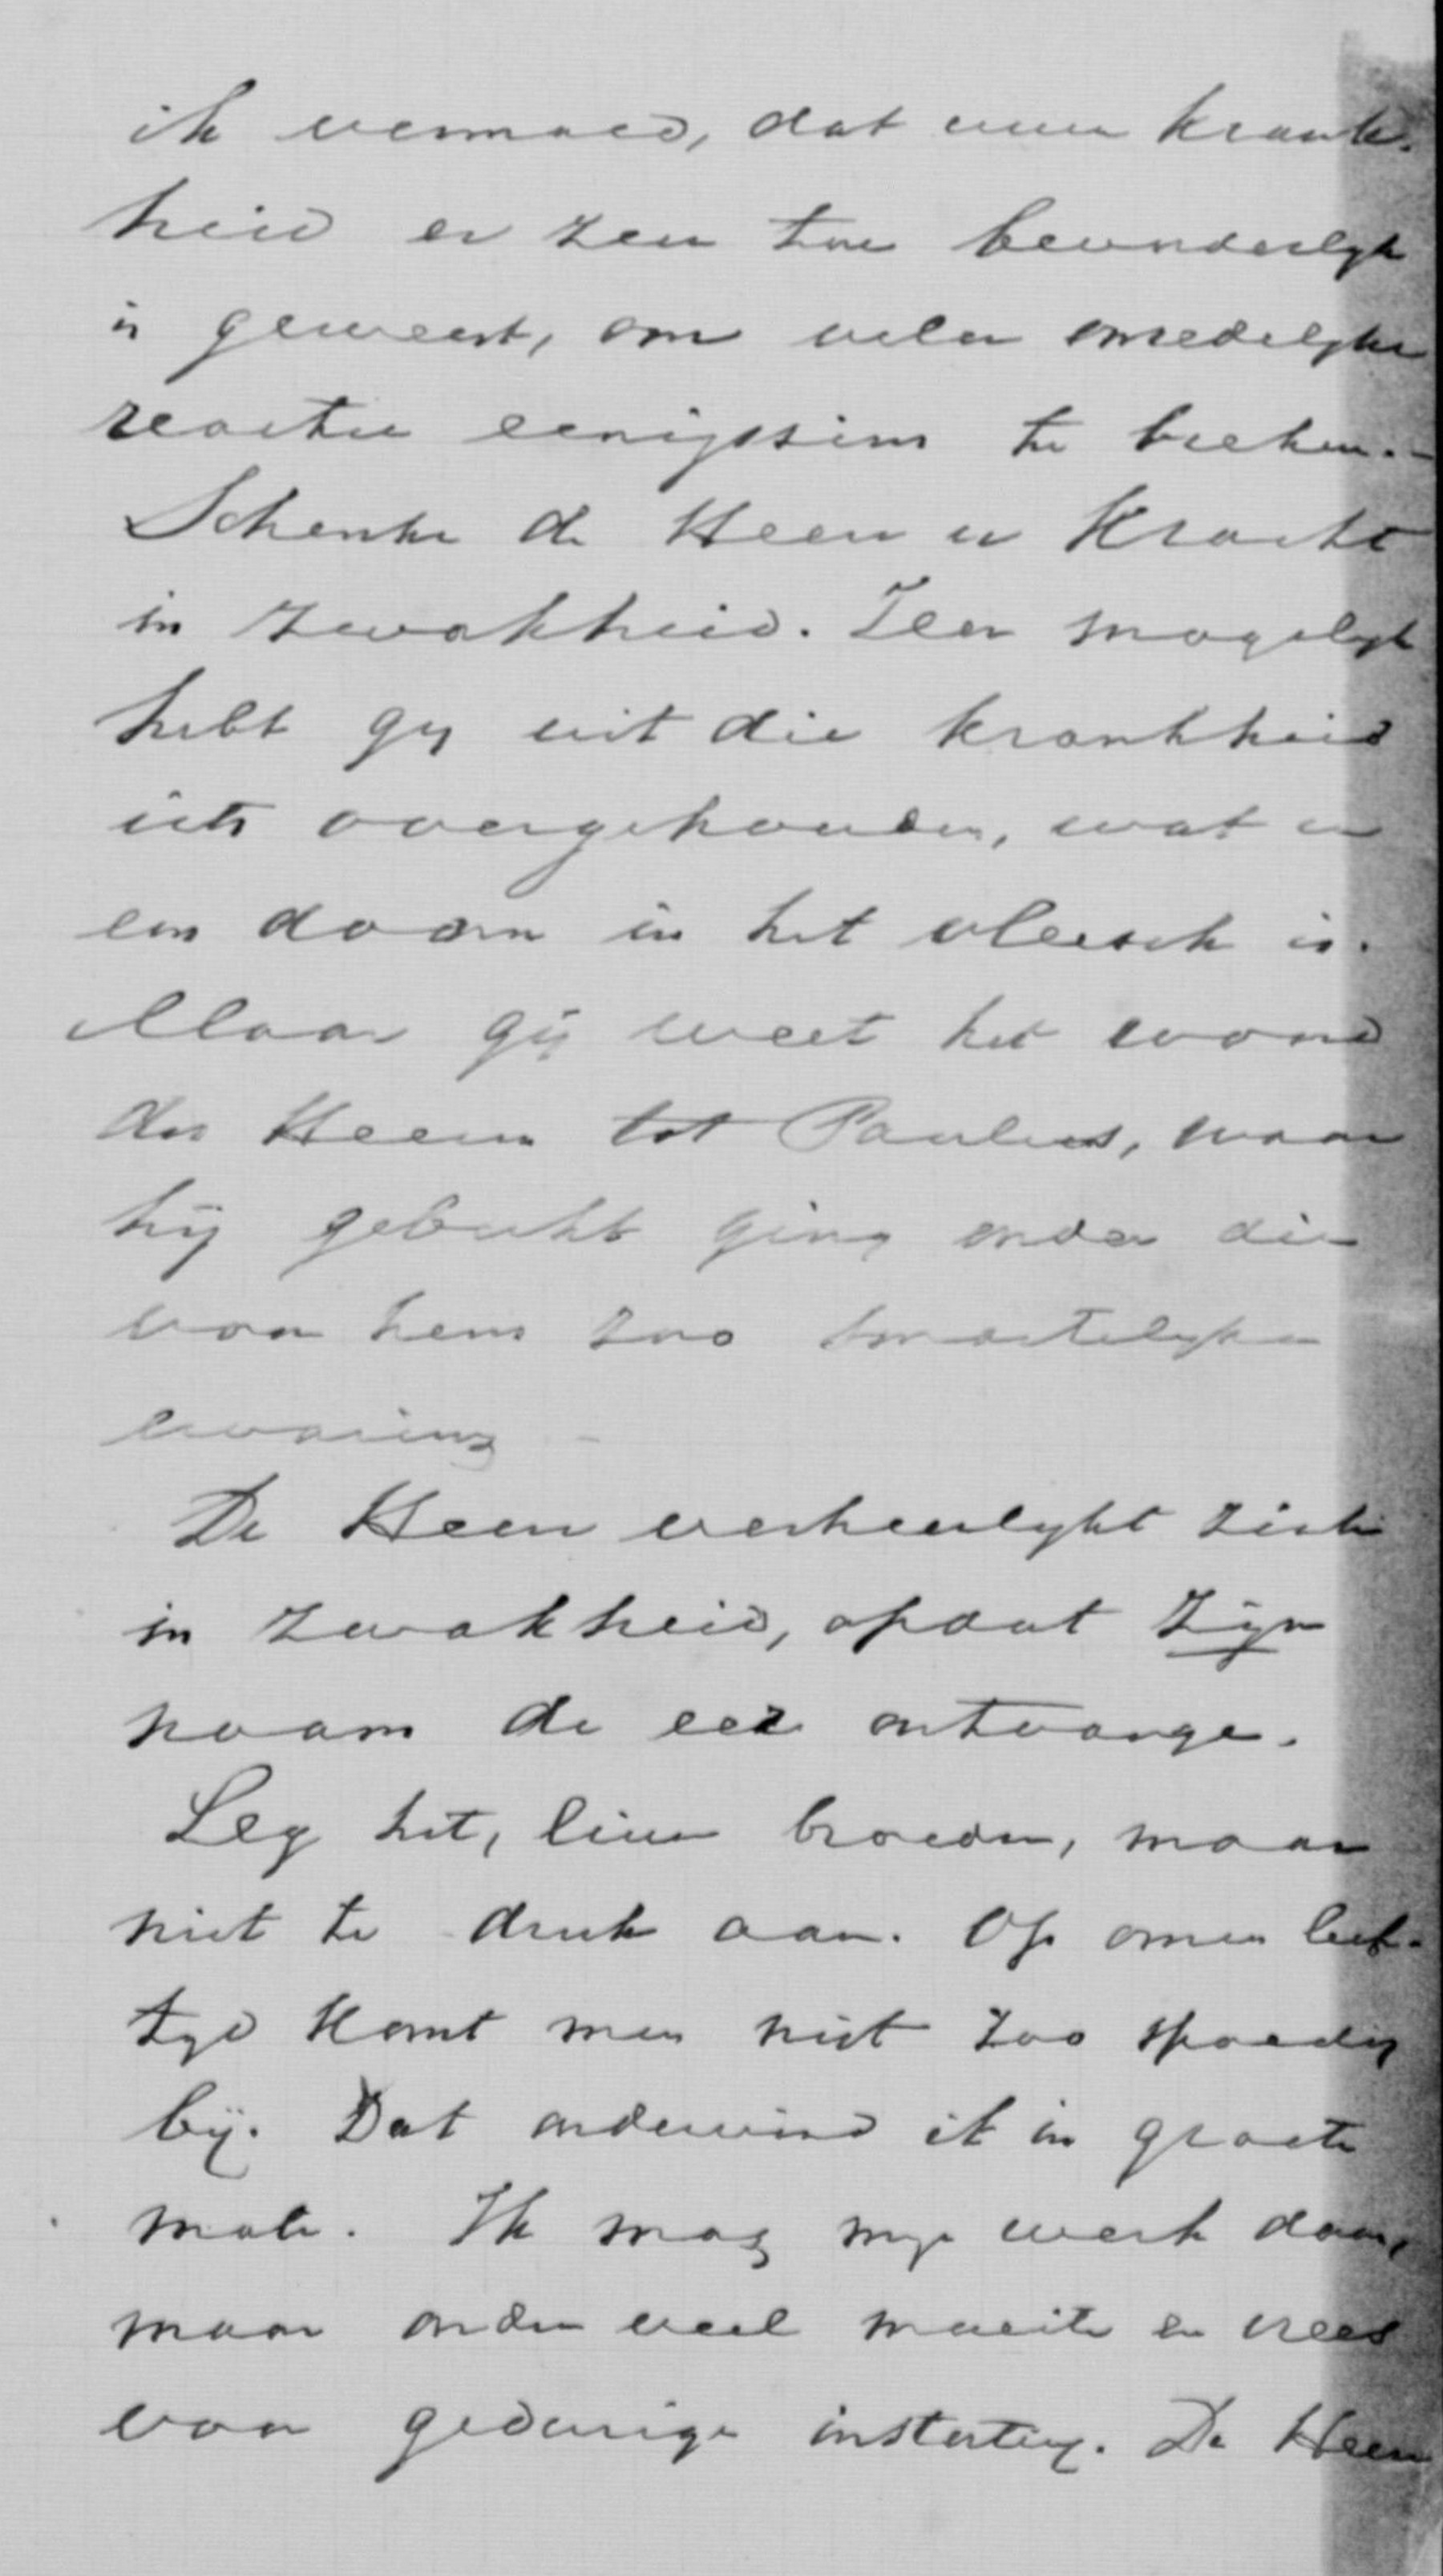 ik vermoed, dat uwe krank-
heid er zeer toe bevorderlijk
is geweest, om veler onredelijke
reactie eenigszins te breken. -
Schenke de Heer u kracht
in zwakheid. Zeer mogelijk
hebt gij uit die krankheid
iets overgehouden, wat u
een doorn in het vleesch is.
Maar gij weet het woord
des Heeren tot Paulus, waar
hij gebukt ging onder die
voor hem zoo smartelijke
ervaring -
De Heer verheerlijkt zich
in zwakheid, opdat Zijn
naam de eer ontvange.
Leg het, lieve broeder, maar
niet te druk aan. Op onzen leef-
tijd komt men niet zoo spoedig
bij. Dat ondervind ik in groote
mate. Ik mag mijn werk doen,
maar onder veel moeite en vrees
voor gedurige instorting. De Heer